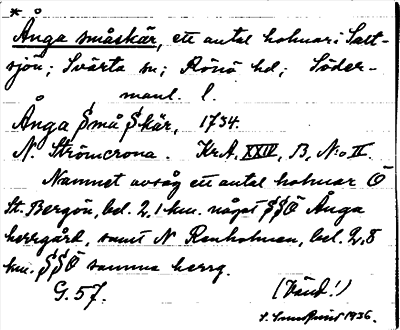 * Ånga småskär, ett antal holmar i Salt-
sjön; Svärta sn; Rönö hd; Söder-
manl. l.
Ånga Små Skär, 1734.
N. Strömcrona. Kr.A. XXIV, B, N:o II.
Namnet avsåg ett antal holmar Ö
St. Bergön, bel. 2,1 km. något SSÖ Ånga
herrgård, samt N Renholmen, bel. 2,8
km. SSÖ samma herrg.
G. 57. (Vänd!)
S. Lundqvist 1936.